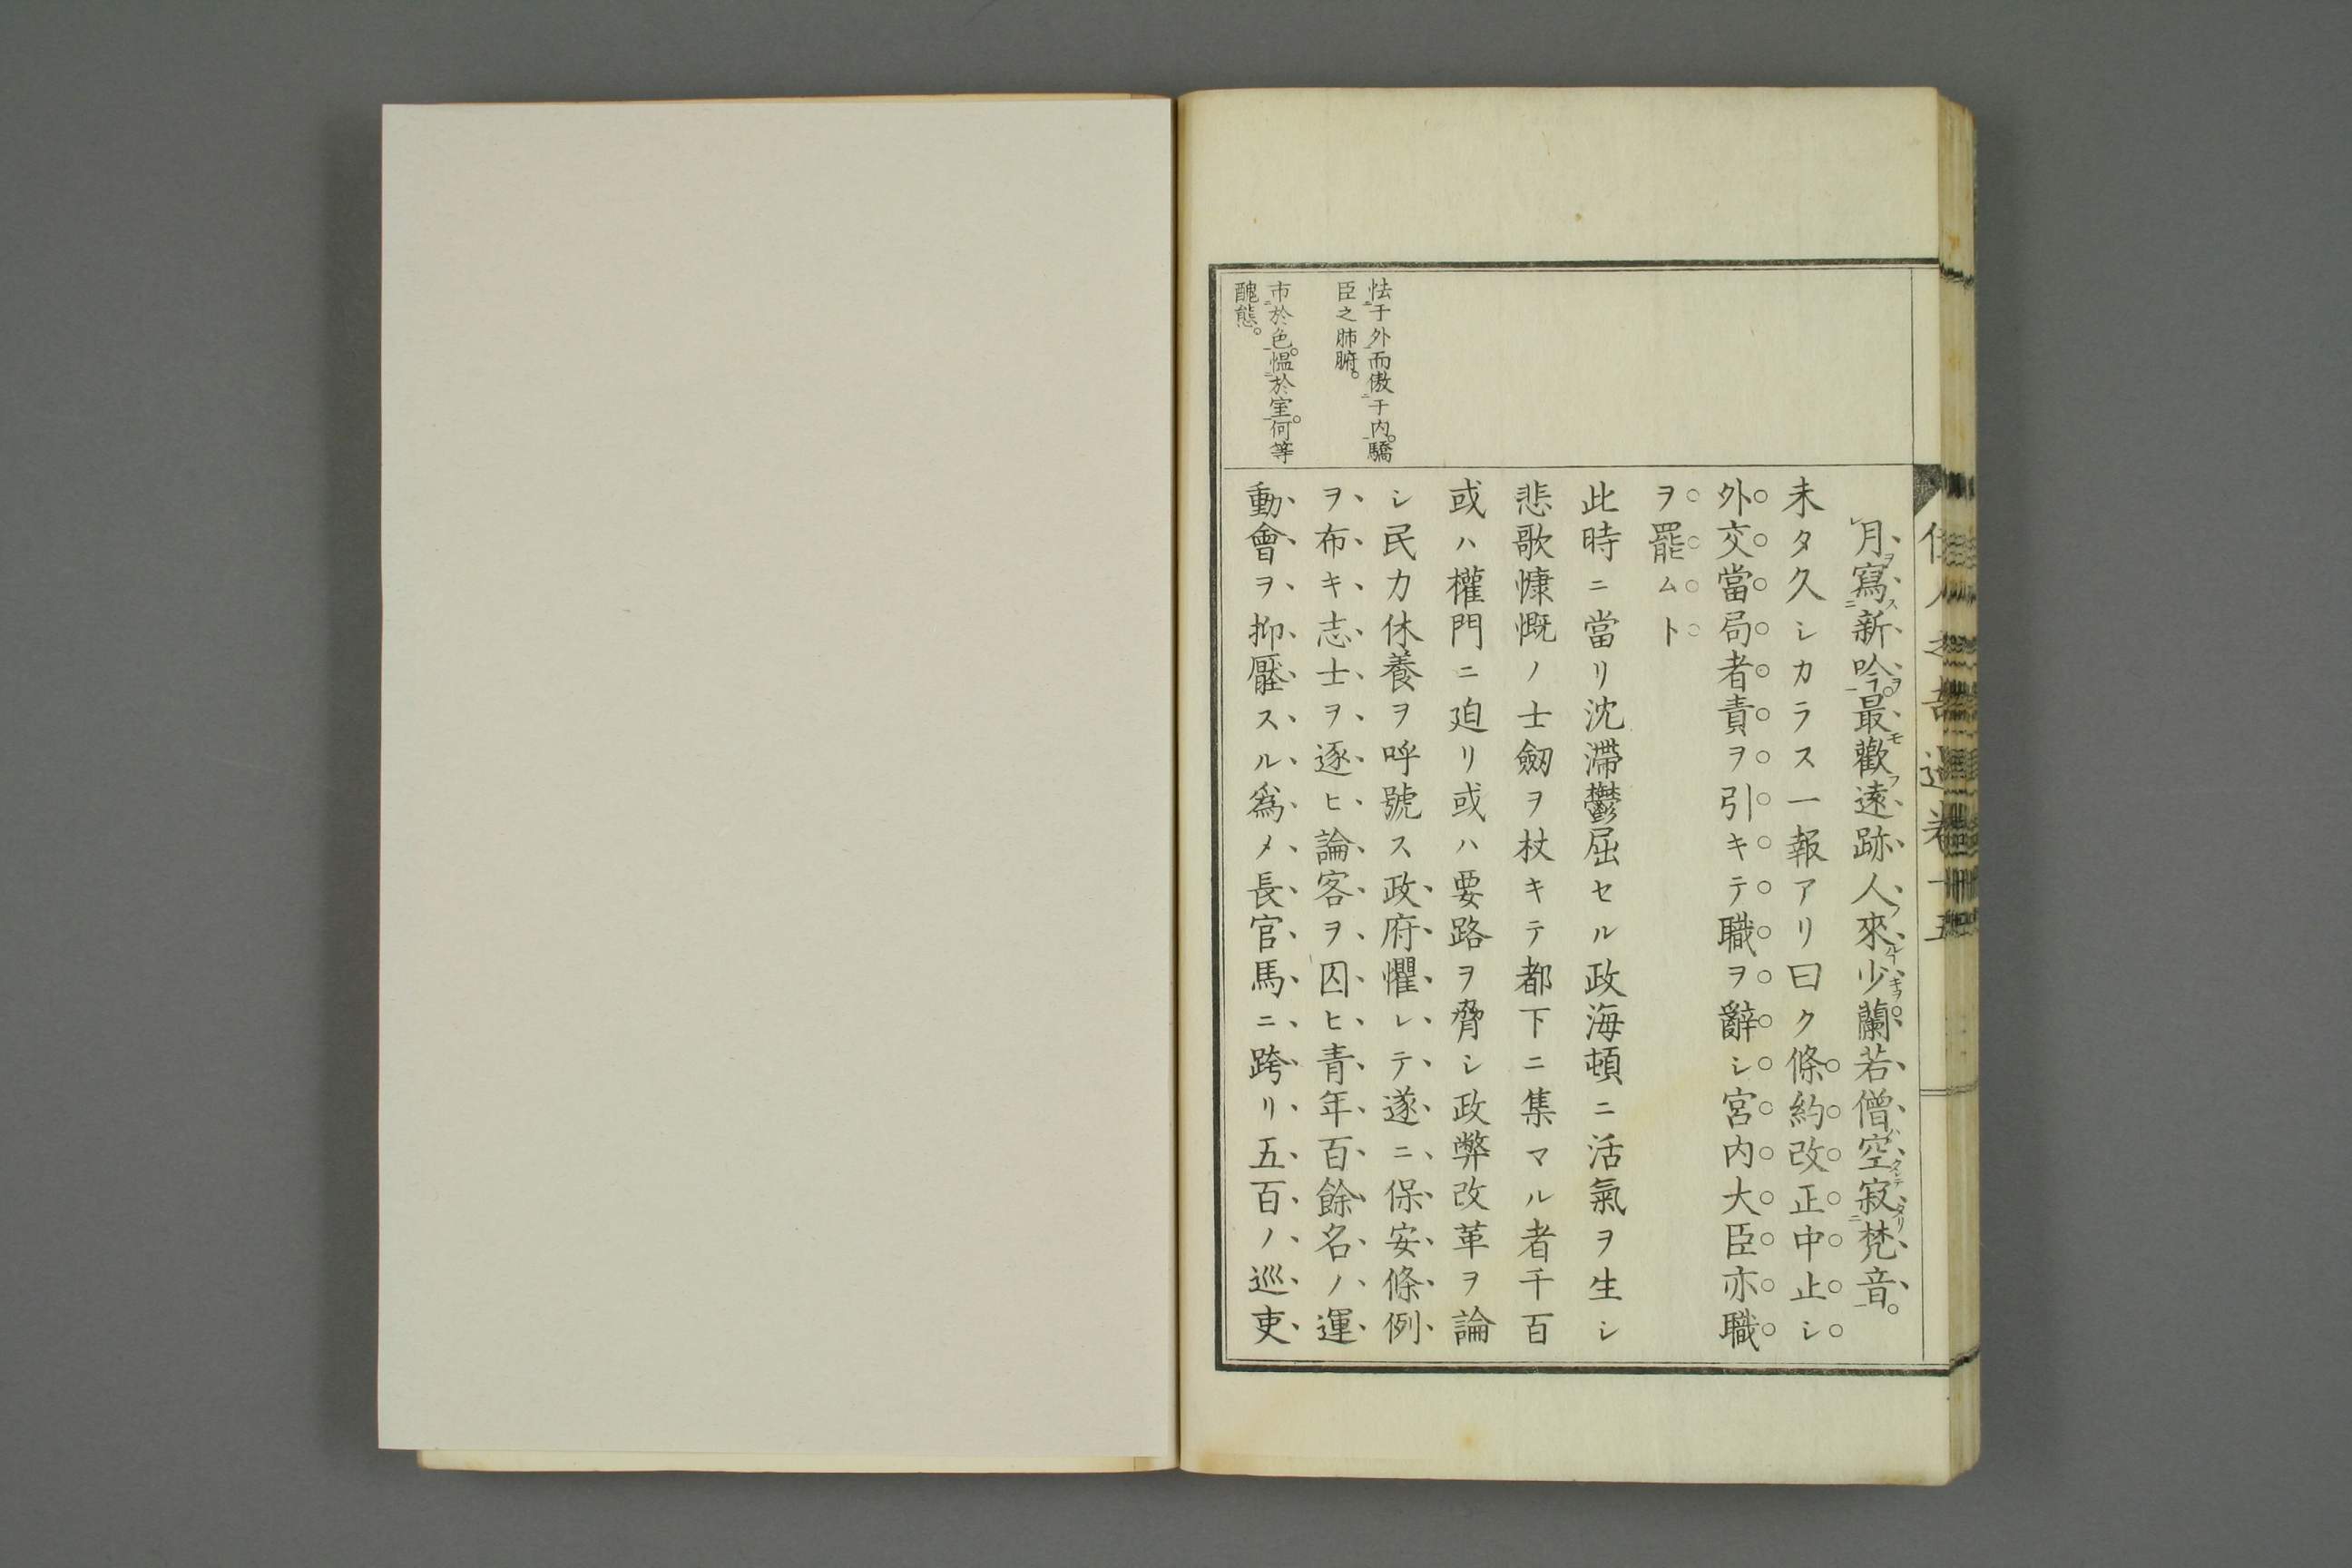 月寫新吟。最歡遠跡人來少。蘭若僧空寂梵音。
未タ久シカラス一報アリ曰ク條約改正中止シ
外交當局者責ヲ引キテ職ヲ辭シ宮内大臣亦職
ヲ罷ムト
此時ニ當リ沈滯鬱屈セル政海頓ニ活氣ヲ生シ
悲歌慷慨ノ士劔ヲ杖キテ都下ニ集マル者千百
或ハ權門ニ迫リ或ハ要路ヲ脅シ政弊改革ヲ論
シ民力休養ヲ呼號ス政府懼レテ遂ニ保安條例
ヲ布キ志士ヲ逐ヒ論客ヲ囚ヒ青年百餘名ノ運
動會ヲ抑壓スル爲メ長官馬ニ跨リ五百ノ巡吏
怯于外而傲于内。驕
臣之肺腑。
市於色。慍於室。何等
醜態。